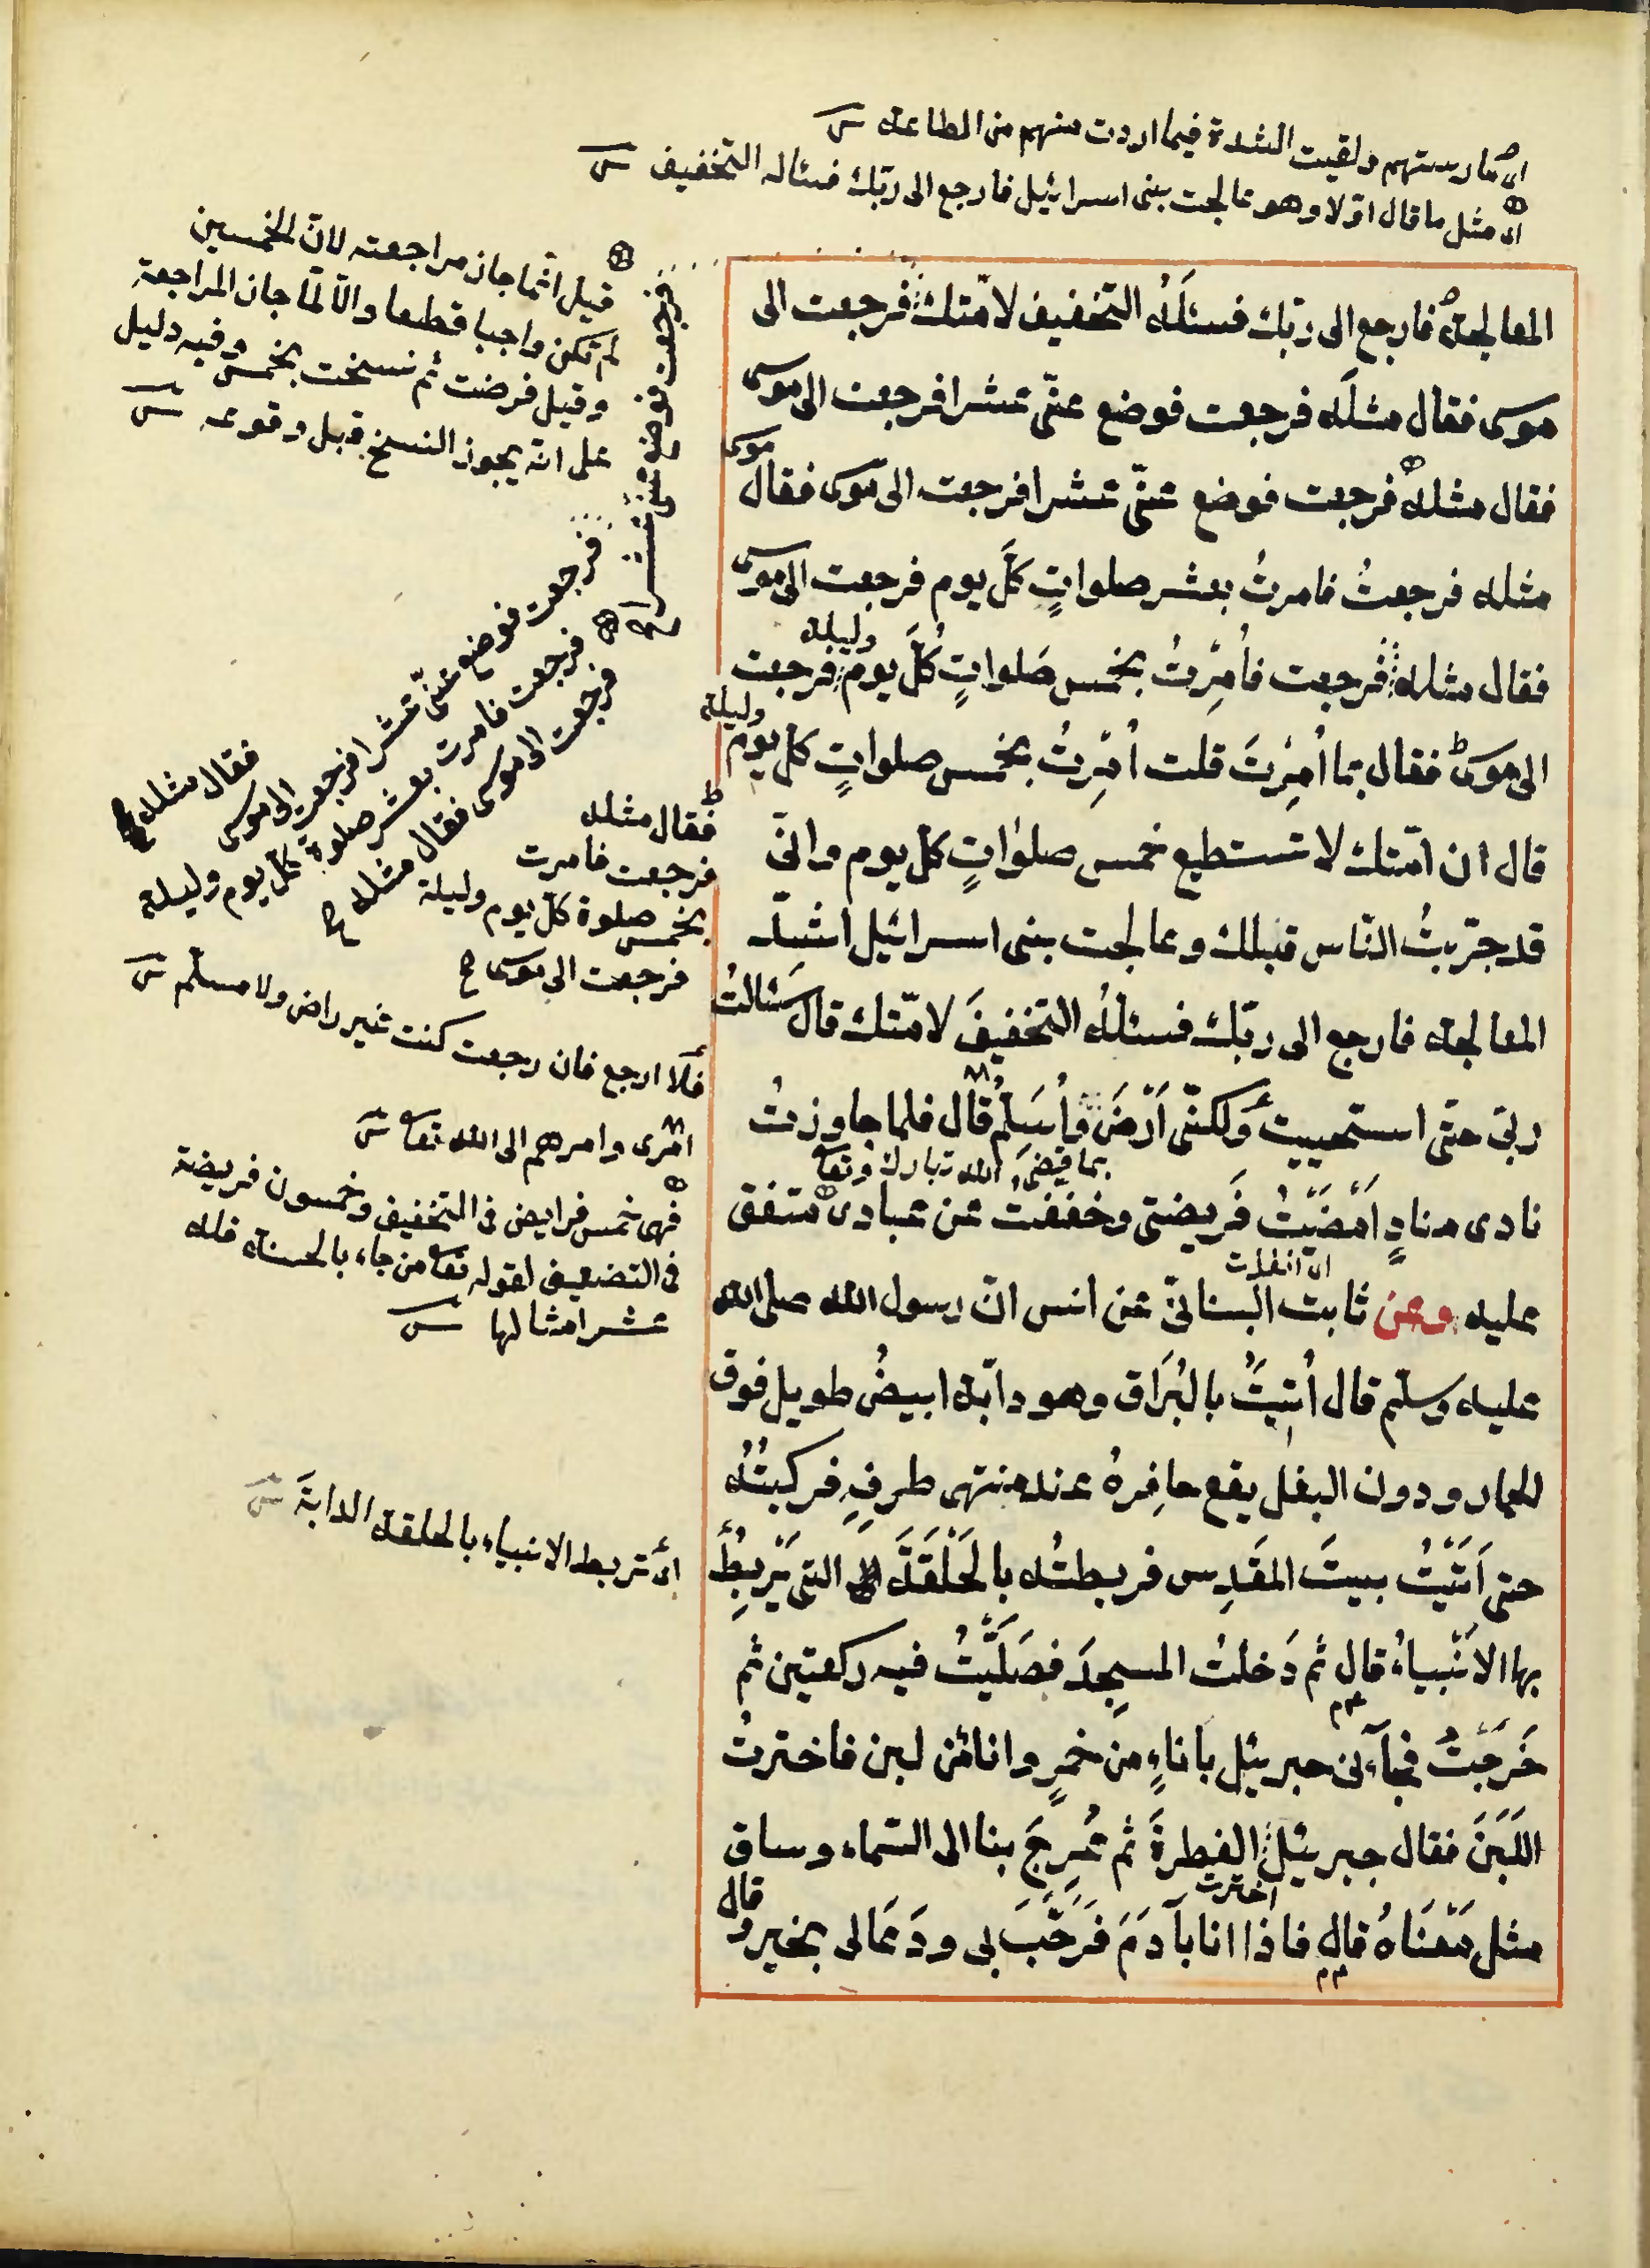 اى مارستهم ولقيت الشدة فيما اردت منهم من الطاعة
اى مثل ما قال اوّلا وهو عالجت بنى اسرائيل فارجع الى ربّك فسئاله التخفيف
المعالجة فارجع الى ربّك فسئلَهُ التخفيف لامّتك فرجعت الى
موسى فقال مثلَه فرجعت فوضع عنّى عشرا فرجعت الى موسى
فقال مثله فرجعت فوضع عنّى عشرا فرجعت الى موسى فقال
موسى
مثله فرجعتُ فامرتُ بعشر صلواتٍ كلَّ يوم فرجعت الى موسى
فقال مثله فرجعت فاُمِرتُ بخمس صَلواتٍ كُلَّ يوم فرجعت
وليلة
الى موسى فقال بما اُمِرتَ قلت اُمِرتُ بخمس صلواتٍ كل يوم
وليلة
قال ان امّتك لا تستطيع خمس صلوٰاتٍ كلّ يوم وانّى
قد جرّبتُ النّاس قبلك وعالجت بنى اسرائيل اشدّ
المعالجة فارجع الى ربّك فسئلهُ التخفيفَ لامّتك قال سَئالتُ
ربّى حتّى استحييت ولكنّى اَرْضَى واُسَلِّمُ قال فلما جاوزتُ
بما قضى الله تبارك وتعا
نادى منادٍ اَمْضَيْتُ فَريضتى وخففتُ عن عبادى متفق
عليه وعن ثابت البنانىّ عن انس انّ رسول الله صلى الله
عليه وسلّم قال اُتيتُ بالبُرَاق وهو دابّة ابيضُ طويل فوق
الحمار ودون البغل يقع حافِرهُ عند منتهى طرفِهِ فركبتُه
حتى اَتَيْتُ بيتَ المَقدِس فربطتُه بالحَلْقَة التى يَرْبِطُ
بها الاَنْبياءُ قال ثم دَخلتُ المسجِدَ فصَلَّيْتُ فيه ركعتين ثم
خَرَجْتُ فجآءنى جبريئل باناءٍ من خمرٍ واناء من لبن فاخترتُ
اللَبَنَ فقال جبريئلُ الفِطرةَ ثم عُرِجَ بنا الى السّماء وساق
اخترت
مثل مَعْنَاهُ قال فاذا انا بآدَمَ فَرَحَّبَ بى ودَعَا لى بخير و
قال
قيل انّما جاز مراجعته لانّ الخمسين
لم تكن واجبا قطعا والّا لما جاز المراجعة
وقيل فرضت ثم نسخت بخمس وفيه دليل
على انّه يجوز النسخ قبل وقوعه
فرجعت فوضع عنّى عشرا
فرجعت فوضع عنّى عشرا فرجعت الى موسى
فقال مثله
فرجعت فامرت بعشر صلوة كلّ يوم وليلة
فرجعت الى موسى فقال مثله
فقال مثله
فرجعت فامرت
بخمس صلوة كلّ يوم وليلة
فرجعت الى موسى
فلا ارجع فان رجعت كنت غير راض ولا مسلّم
امرى وامرهم الى الله تعا
فهى خمس فرايض فى التخفيف وخمسون فريضة
فى التضعيف لقوله تعا من جاء بالحسنة فله
عشر امثالها
اى تربط الانبياء بالحلقة الدابة